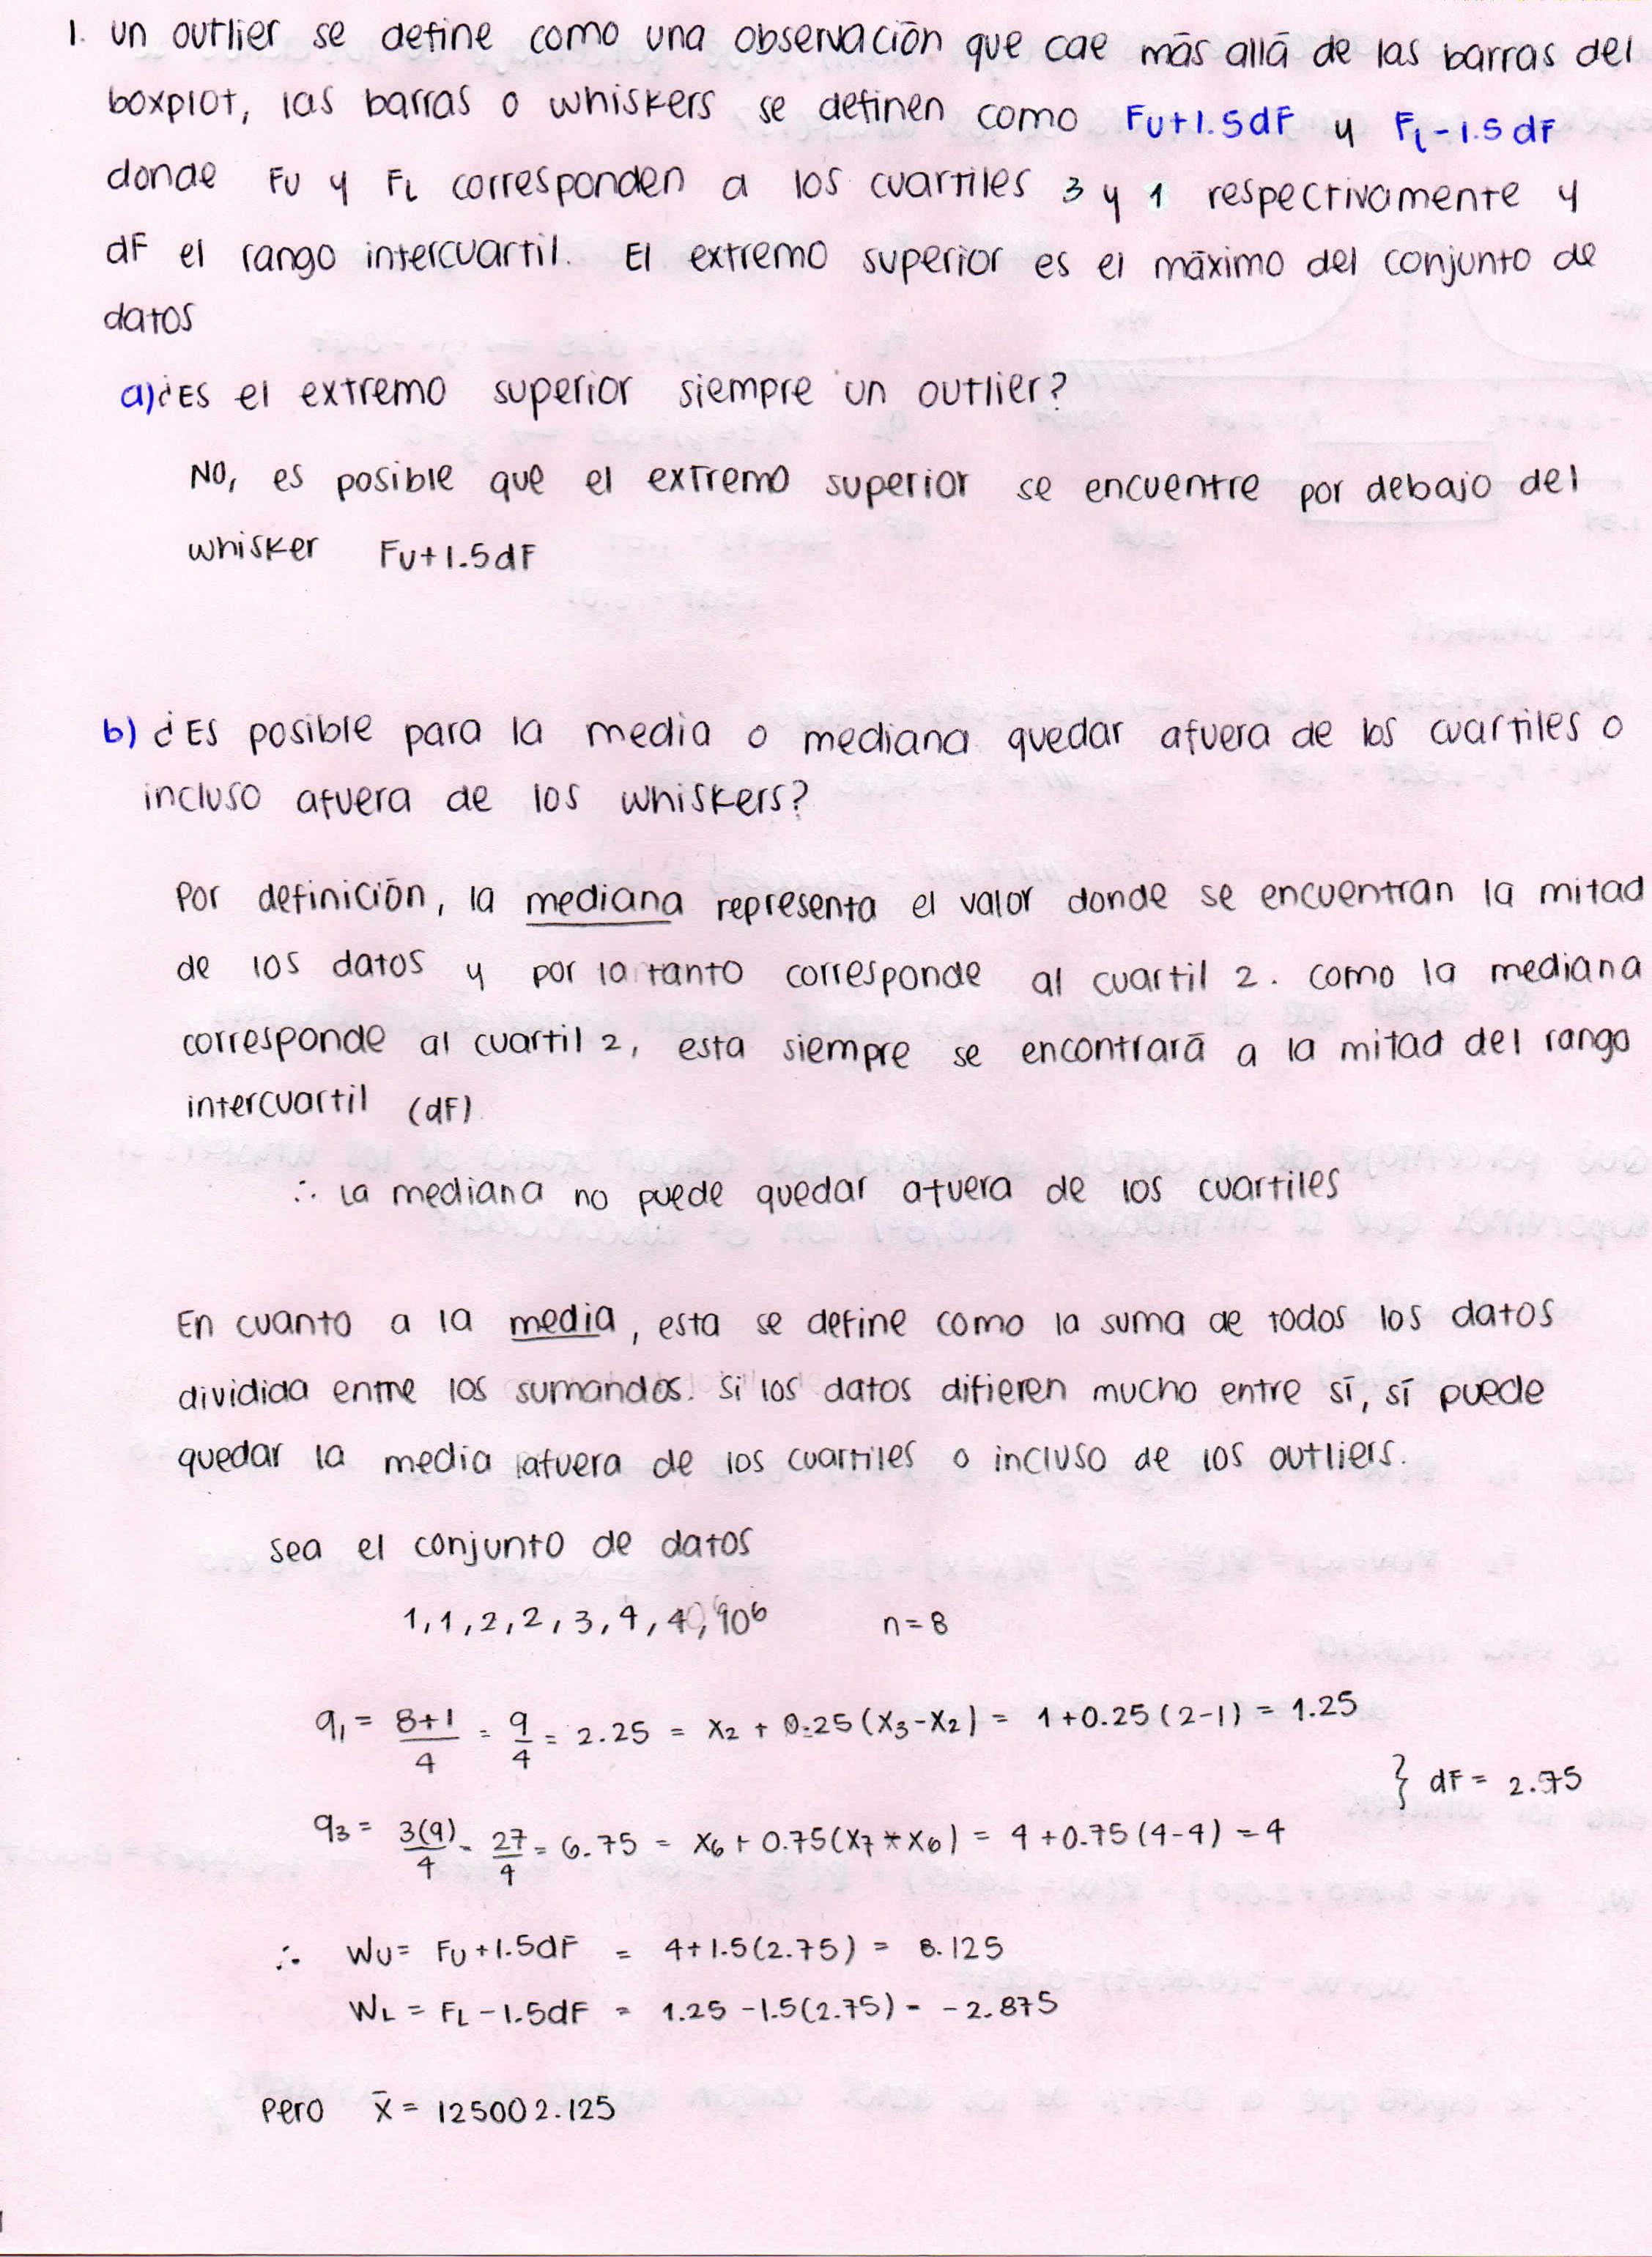 1. Un outlier se define como una observación que cae más allá de las barras del
boxplot, las barras o whiskers se definen como FU+1.5dF y FL-1.5dF
donde FU y FL corresponden a los cuartiles 3 y 1 respectivamente y
dF el rango intercuartil. El extremo superior es el máximo del conjunto de
datos
a) ¿Es el extremo superior siempre un outlier?
No, es posible que el extremo superior se encuentre por debajo del
whisker FU+1.5dF
b) ¿Es posible para la media o mediana quedar afuera de los cuartiles o
incluso afuera de los whiskers?
Por definición, la mediana representa el valor donde se encuentran la mitad
de los datos y por lo tanto corresponde al cuartil 2. Como la mediana
corresponde al cuartil 2, esta siempre se encontrará a la mitad del rango
intercuartil (dF)
∴ La mediana no puede quedar afuera de los cuartiles
En cuanto a la media, esta se define como la suma de todos los datos
dividida entre los sumandos. Si los datos difieren mucho entre sí, sí puede
quedar la media afuera de los cuartiles o incluso de los outliers.
sea el conjunto de datos
1, 1, 2, 2, 3, 4, 4, 10⁶ n=8
q₁ = (8+1)/4 = 9/4 = 2.25 = X₂ + 0.25(X₃-X₂) = 1+0.25(2-1) = 1.25
} dF = 2.75
q₃ = 3(9)/4 = 27/4 = 6.75 = X₆ + 0.75(X₇*X₆) = 4+0.75(4-4) = 4
∴ WU = FU+1.5dF = 4+1.5(2.75) = 8.125
WL = FL-1.5dF = 1.25-1.5(2.75) = -2.875
Pero x̄ = 125002.125